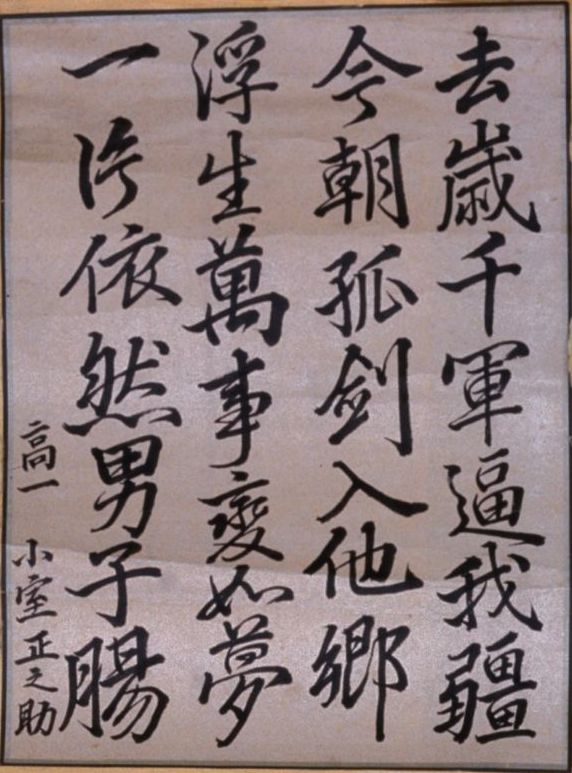 去歳千軍逼我疆
今朝孤剣入他郷
浮生萬事變如夢
一片依然男子腸
高一 小室正之助